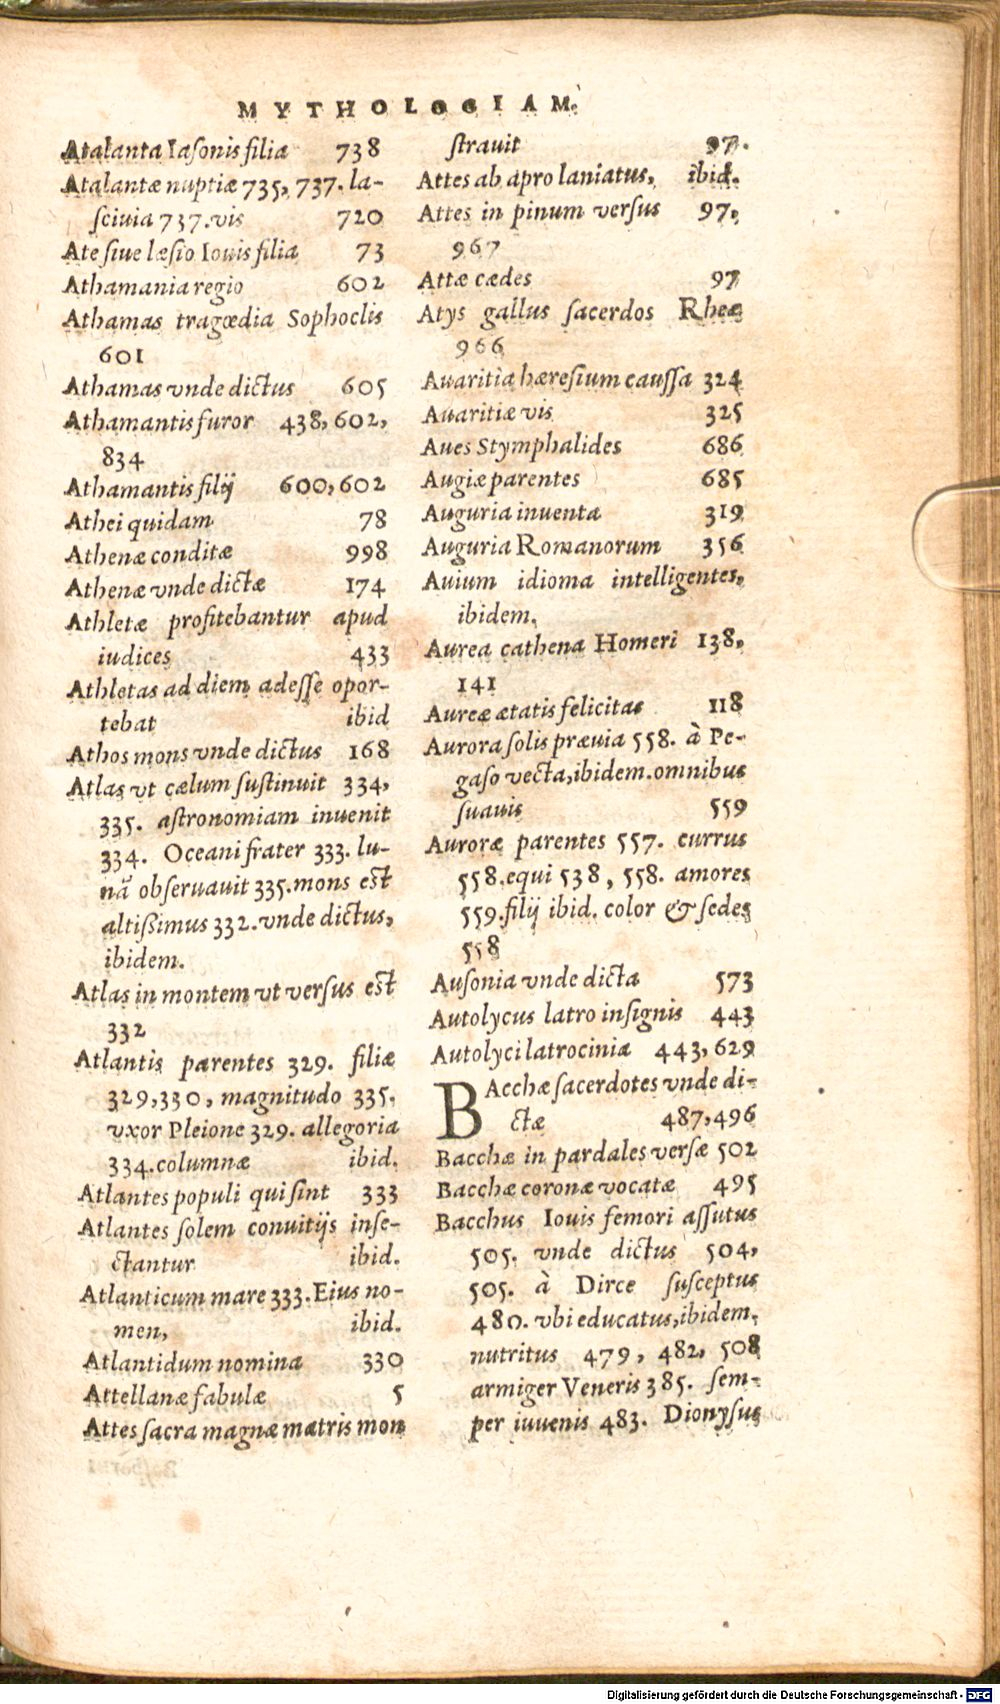 MYTHOLOGIAM.
Atalanta Iasonis filia 738
Atalantæ nuptiæ 735, 737. la-
sciuia 737. vis 720
Ate siue læsio Iouis filia 73
Athamania regio 602
Athamas tragœdia Sophoclis
601
Athamas vnde dictus 605
Athamantis furor 438, 602,
834
Athamantis filij 600, 602
Athei quidam 78
Athenæ conditæ 998
Athenæ vnde dictæ 174
Athletæ profitebantur apud
iudices 433
Athletas ad diem adesse opor-
tebat ibid
Athos mons vnde dictus 168
Atlas vt cælum sustinuit 334,
335. astronomiam inuenit
334. Oceani frater 333. lu-
nā obseruauit 335. mons est
altißimus 332. vnde dictus,
ibidem.
Atlas in montem vt versus est
332
Atlantis parentes 329. filiæ
329, 330, magnitudo 335.
vxor Pleione 329. allegoria
334. columnæ ibid.
Atlantes populi qui sint 333
Atlantes solem conuitijs inse-
ctantur ibid.
Atlanticum mare 333. Eius no-
men, ibid.
Atlantidum nomina 330
Attellanæ fabulæ 5
Attes sacra magnæ matris mon
strauit 97.
Attes ab apro laniatus, ibid.
Attes in pinum versus 97,
967
Attæ cædes 97
Atys gallus sacerdos Rheæ
966
Auaritia hæresium caussa 324
Auaritiæ vis 325
Aues Stymphalides 686
Augiæ parentes 685
Auguria inuenta 319
Auguria Romanorum 356
Auium idioma intelligentes,
ibidem.
Aurea cathena Homeri 138,
141
Aureæ ætatis felicitas 118
Aurora solis præuia 558. à Pe-
gaso vecta, ibidem. omnibus
suauis 559
Auroræ parentes 557. currus
558. equi 538, 558. amores
559. filij ibid. color & sedes
558
Ausonia vnde dicta 573
Autolycus latro insignis 443
Autolyci latrocinia 443, 629
BAcchæ sacerdotes vnde di-
ctæ 487, 496
Bacchæ in pardales versæ 502
Bacchæ coronæ vocatæ 495
Bacchus Iouis femori assutus
505. vnde dictus 504,
505. à Dirce susceptus
480. vbi educatus, ibidem,
nutritus 479, 482, 508
armiger Veneris 385. sem-
per iuuenis 483. Dionysus
Digitalisierung gefördert durch die Deutsche Forschungsgemeinschaft - DFG